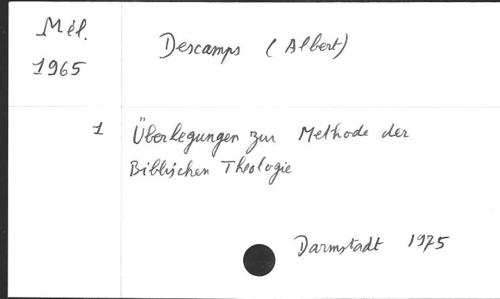 Mél.
1965
Descamps (Albert)
1 Überlegungen zur Methode der
Biblischen Theologie
Darmstadt 1975